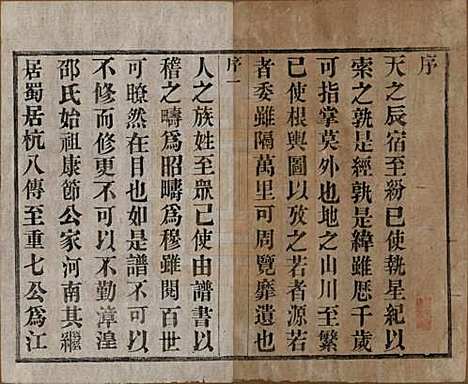 序
天之辰宿至紛已使執星紀以
索之孰是經孰是緯雖歷千歲
可指掌莫外也地之山川至繁
已使根輿圖以攷之若者源若
者委雖隔萬里可周覽靡遺也
序一
人之族姓至眾已使由譜書以
稽之疇爲昭疇爲穆雖閱百世
可瞭然在目也如是譜不可以
不修而修更不可以不勤漳湟
邵氏始祖康節公家河南其繼
居蜀居杭八傳至重七公爲江